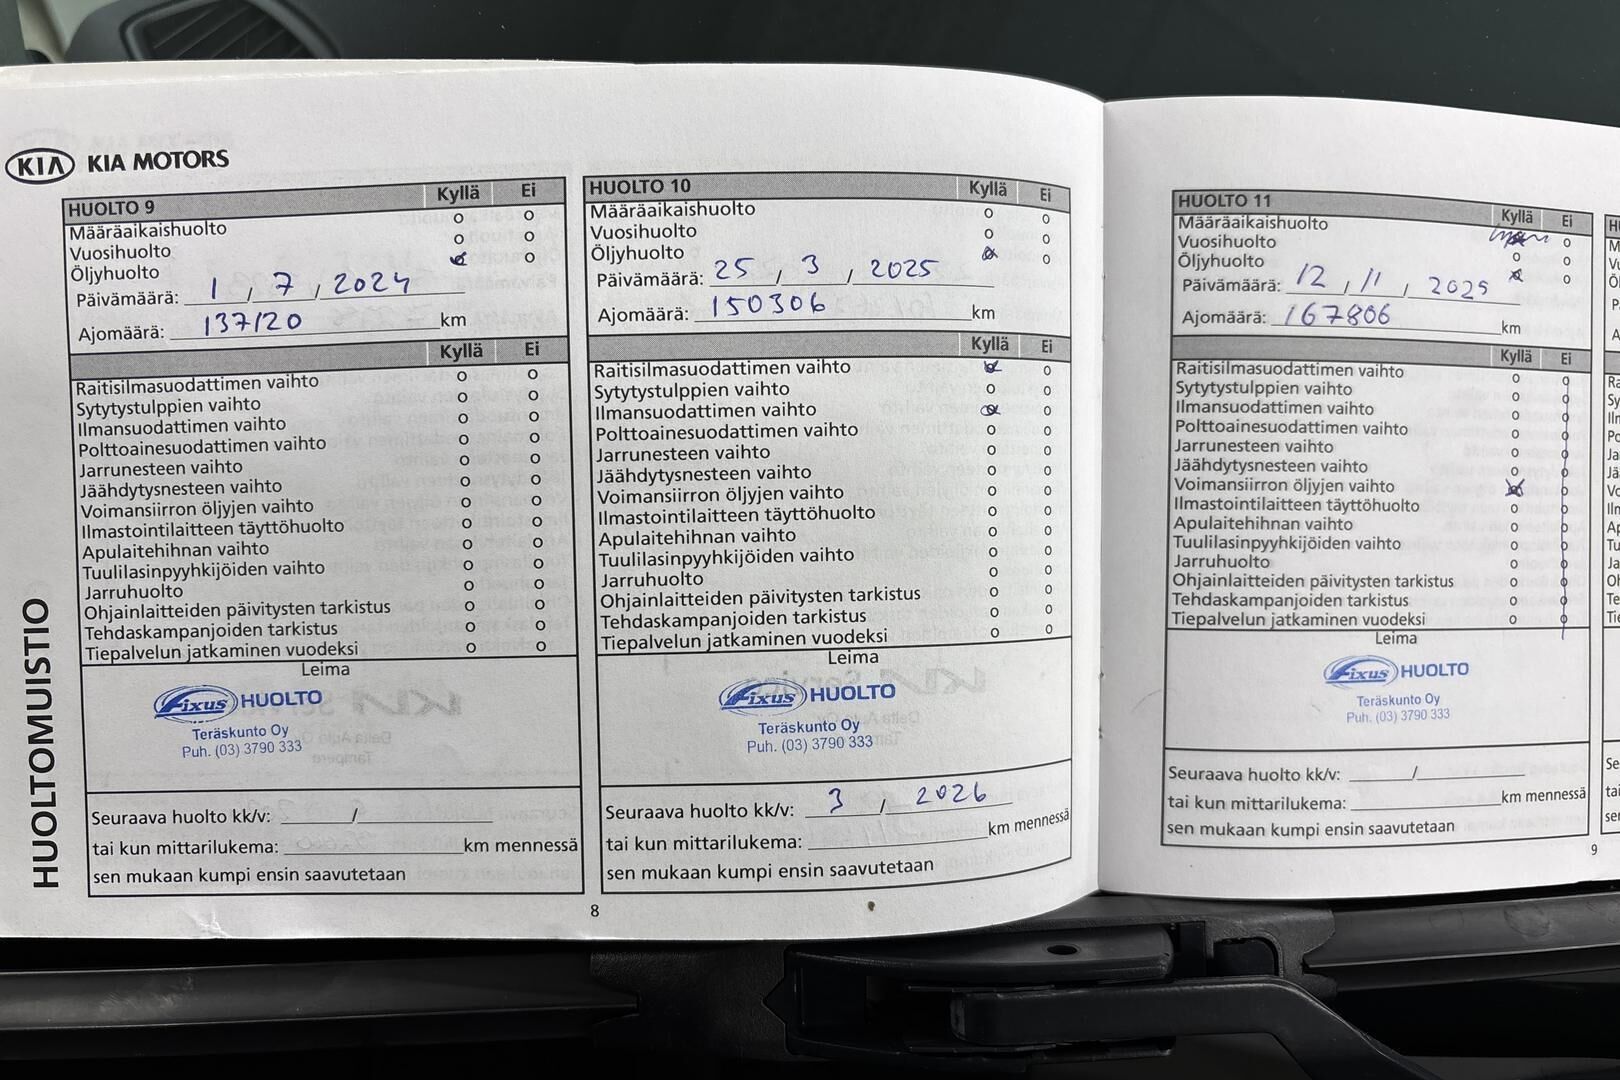 KIA KIA MOTORS
HUOLTOMUISTIO
HUOLTO 9 Kyllä Ei
Määräaikaishuolto o o
Vuosihuolto o o
Öljyhuolto o
Päivämäärä: 1 / 7 / 2024
Ajomäärä: 137120 km
Kyllä Ei
Raitisilmasuodattimen vaihto o o
Sytytystulppien vaihto o o
Ilmansuodattimen vaihto o o
Polttoainesuodattimen vaihto o o
Jarrunesteen vaihto o o
Jäähdytysnesteen vaihto o o
Voimansiirron öljyjen vaihto o o
Ilmastointilaitteen täyttöhuolto o o
Apulaitehihnan vaihto o o
Tuulilasinpyyhkijöiden vaihto o o
Jarruhuolto o o
Ohjainlaitteiden päivitysten tarkistus o o
Tehdaskampanjoiden tarkistus o o
Tiepalvelun jatkaminen vuodeksi o o
Leima
Fixus HUOLTO
Teräskunto Oy
Puh. (03) 3790 333
Seuraava huolto kk/v: /
tai kun mittarilukema: km mennessä
sen mukaan kumpi ensin saavutetaan
8
HUOLTO 10 Kyllä Ei
Määräaikaishuolto o o
Vuosihuolto o o
Öljyhuolto o
Päivämäärä: 25 / 3 / 2025
Ajomäärä: 150306 km
Kyllä Ei
Raitisilmasuodattimen vaihto o
Sytytystulppien vaihto o o
Ilmansuodattimen vaihto o
Polttoainesuodattimen vaihto o o
Jarrunesteen vaihto o o
Jäähdytysnesteen vaihto o o
Voimansiirron öljyjen vaihto o o
Ilmastointilaitteen täyttöhuolto o o
Apulaitehihnan vaihto o o
Tuulilasinpyyhkijöiden vaihto o o
Jarruhuolto o o
Ohjainlaitteiden päivitysten tarkistus o o
Tehdaskampanjoiden tarkistus o o
Tiepalvelun jatkaminen vuodeksi o o
Leima
Fixus HUOLTO
Teräskunto Oy
Puh. (03) 3790 333
Seuraava huolto kk/v: 3 / 2026
tai kun mittarilukema: km mennessä
sen mukaan kumpi ensin saavutetaan
HUOLTO 11 Kyllä Ei
Määräaikaishuolto o
Vuosihuolto o o
Öljyhuolto o
Päivämäärä: 12 / 11 / 2025
Ajomäärä: 167806 km
Kyllä Ei
Raitisilmasuodattimen vaihto o o
Sytytystulppien vaihto o o
Ilmansuodattimen vaihto o o
Polttoainesuodattimen vaihto o o
Jarrunesteen vaihto o o
Jäähdytysnesteen vaihto o o
Voimansiirron öljyjen vaihto o
Ilmastointilaitteen täyttöhuolto o o
Apulaitehihnan vaihto o o
Tuulilasinpyyhkijöiden vaihto o o
Jarruhuolto o o
Ohjainlaitteiden päivitysten tarkistus o o
Tehdaskampanjoiden tarkistus o o
Tiepalvelun jatkaminen vuodeksi o o
Leima
Fixus HUOLTO
Teräskunto Oy
Puh. (03) 3790 333
Seuraava huolto kk/v: /
tai kun mittarilukema: km mennessä
sen mukaan kumpi ensin saavutetaan
9